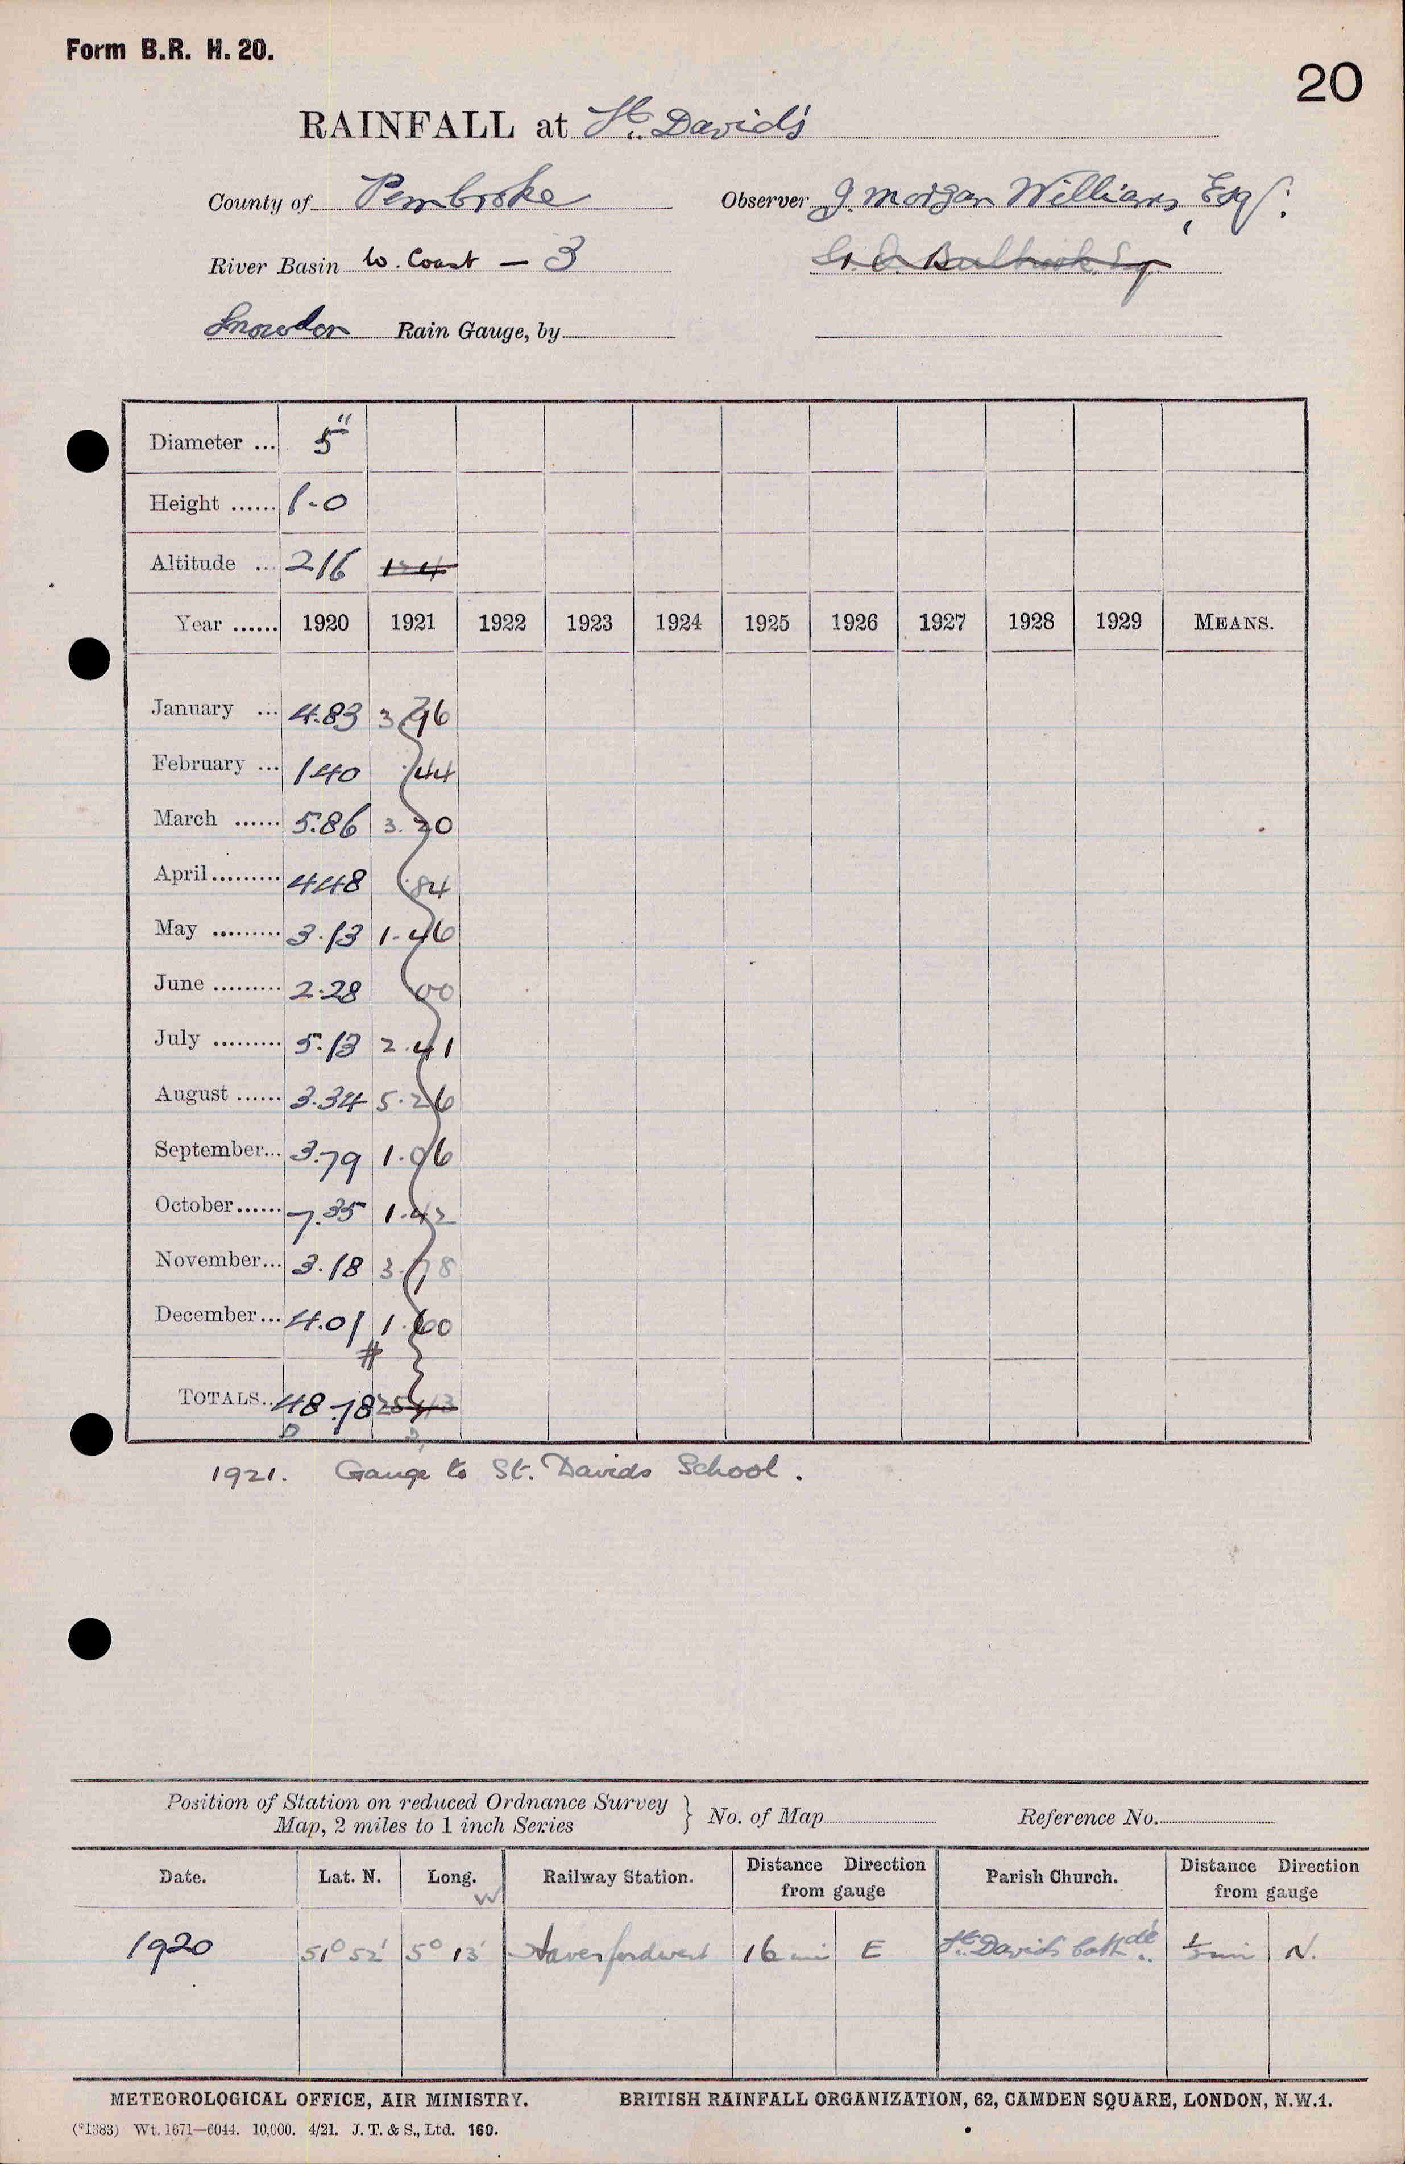 Form B.R. H. 20.
20
RAINFALL at St. David's
County of Pembroke Observer J. Morgan Williams, Esq.
River Basin W. Coast — 3
Snowdon Rain Gauge, by
Diameter ... 5"
Height ...... 1-0
Altitude ... 216
Year ...... 1920 1921 1922 1923 1924 1925 1926 1927 1928 1929 MEANS.
January ... 4.83 3.96
February ... 1.40 .44
March ...... 5.86 3.20
April ......... 4.48 .84
May ......... 3.13 1.46
June ......... 2.28 .00
July ......... 5.13 2.41
August ...... 3.34 5.26
September... 3.79 1.06
October...... 7.35 1.42
November... 3.18 3.78
December... 4.01 1.60
#
TOTALS.. 48.78
1921. Gauge to St. Davids School.
Position of Station on reduced Ordnance Survey
Map, 2 miles to 1 inch Series } No. of Map Reference No.
Date. Lat. N. Long. W Railway Station. Distance Direction from gauge Parish Church. Distance Direction from gauge
1920 51° 52' 5° 13' Haverfordwest 16 mi E St. Davids Cathdl. N.
METEOROLOGICAL OFFICE, AIR MINISTRY. BRITISH RAINFALL ORGANIZATION, 62, CAMDEN SQUARE, LONDON, N.W.1.
(*1383) Wt. 1671—6044. 10,000. 4/21. J. T. & S., Ltd. 160.